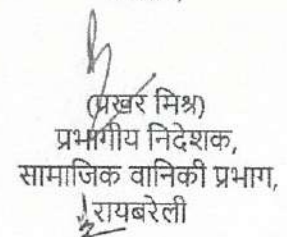 (प्रखर मिश्र)
प्रभागीय निदेशक,
सामाजिक वानिकी प्रभाग,
रायबरेली